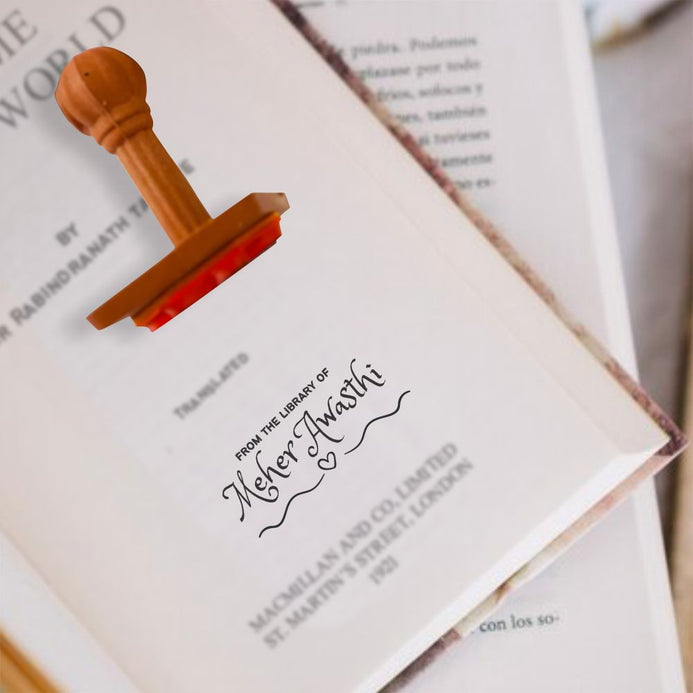 ME
WORLD
BY
RABINDRANATH
TRANSLATED
FROM THE LIBRARY OF
Meher Awasthi
MACMILLAN AND CO. LIMITED
ST. MARTIN'S STREET, LONDON
1921
piedra. Podemos
por todo
fríos, sofocos y
también
si tuvieses
con los so-